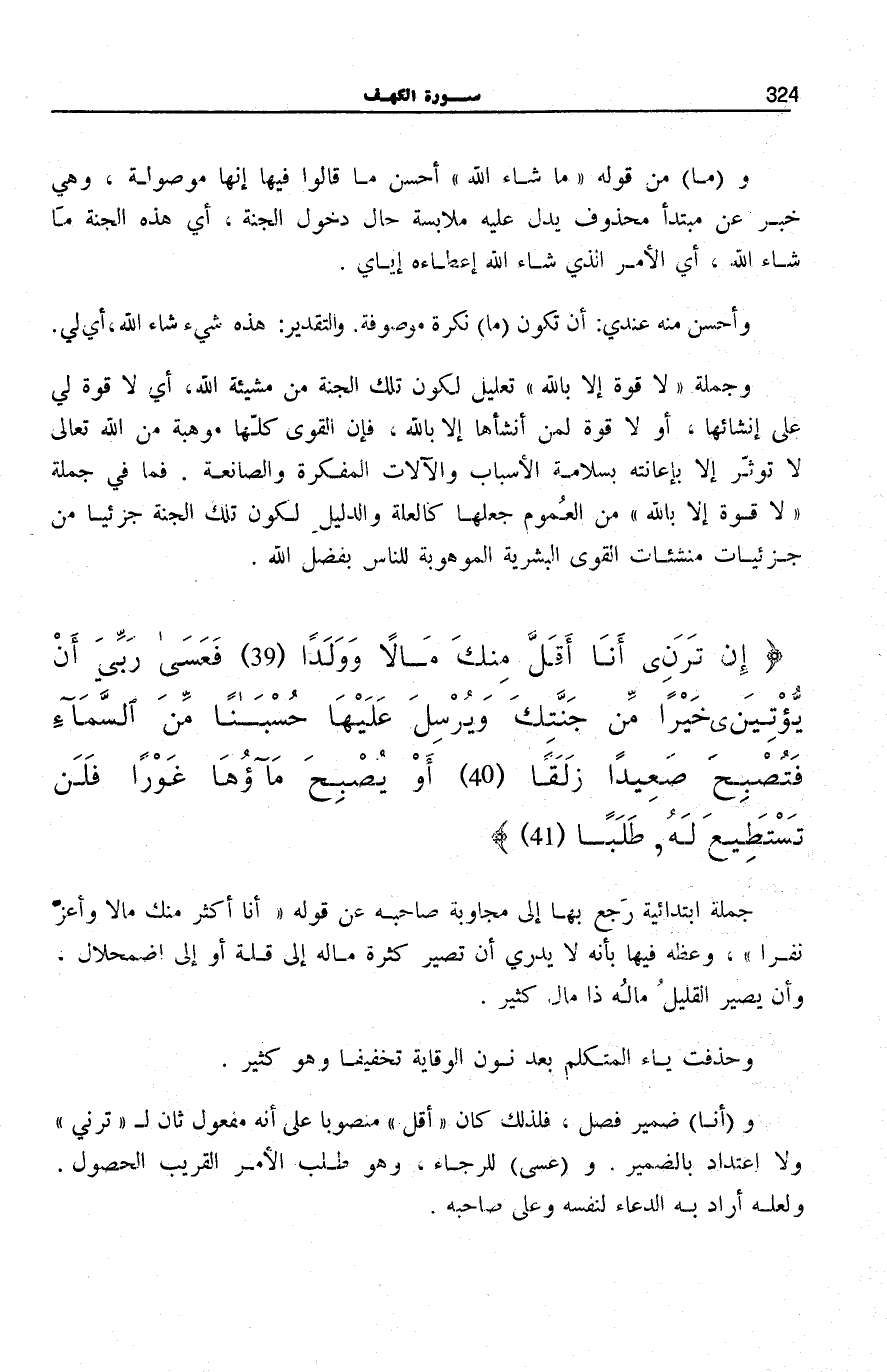 324
سورة الكهف
و (ما) من قوله « ما شاء الله » أحسن ما قالوا فيها إنها موصولة ، وهي
خبر عن مبتدأ محذوف يدل عليه ملابسة حال دخول الجنة ، أي هذه الجنة مَا
شاء الله ، أي الأمر الذي شاء الله إعطاءه إياي .
وأحسن منه عندي: أن تكون (ما) نكرة موصوفة. والتقدير: هذه شيء شاء الله،أي لي.
وجملة « لا قوة إلا بالله » تعليل لكون تلك الجنة من مشيئة الله، أي لا قوة لي
على إنشائها ، أو لا قوة لمن أنشأها إلا بالله ، فإن القوى كلّها موهبة من الله تعالى
لا توثّر إلا بإعانته بسلامة الأسباب والآلات المفكرة والصانعة . فما في جملة
« لا قوة إلا بالله » من العُموم جعلها كالعلة والدليل لكون تلك الجنة جزئيا من
جزئيات منشئات القوى البشرية الموهوبة للناس بفضل الله .
﴿ إِن تَرَنِى أَنَا أَقَلَّ مِنكَ مَالًا وَوَلَدًا (39) فَعَسَىٰ رَبِّيَ أَنْ
يُّؤْتِيَنِى خَيْرًا مِّن جَنَّتِكَ وَيُرْسِلَ عَلَيْهَا حُسْبَـٰنًا مِّنَ ٱلسَّمَآءِ
فَتُصْبِحَ صَعِيدًا زَلَقًا (40) أَوْ يُصْبِحَ مَآؤُهَا غَوْرًا فَلَن
تَسْتَطِيعَ لَهُۥ طَلَبًا (41) ﴾
جملة ابتدائية رَجع بها إلى مجاوبة صاحبه عن قوله « أنا أكثر منك مالا وأعزّ
نفرا » ، وعظه فيها بأنه لا يدري أن تصير كثرة ماله إلى قلة أو إلى اضمحلال ،
وأن يصير القليلُ مالُه ذا مال كثير .
وحذفت ياء المتكلم بعد نون الوقاية تخفيفا وهو كثير .
و (أنا) ضمير فصل ، فلذلك كان « أقل » منصوبا على أنه مفعول ثان لـ « ترني »
ولا اعتداد بالضمير . و (عسى) للرجاء ، وهو طلب الأمر القريب الحصول .
ولعله أراد به الدعاء لنفسه وعلى صاحبه .